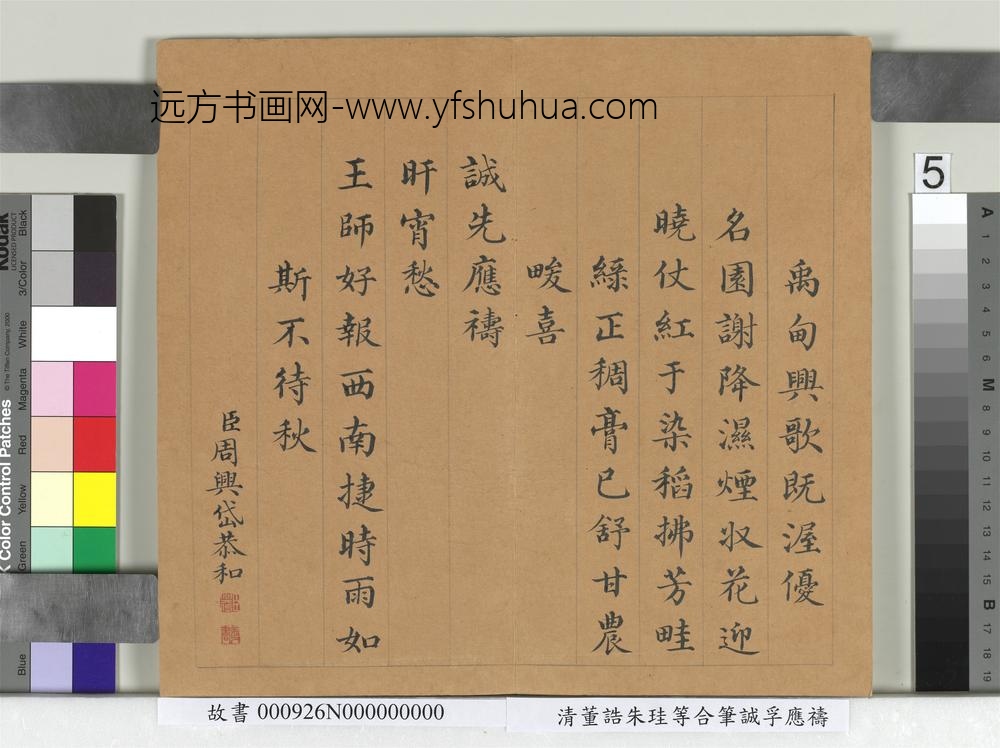 远方书画网-www.yfshuhua.com
禹甸興歌既渥優
名園謝降濕煙収花迎
曉仗紅于染稻拂芳畦
綠正稠膏已舒甘農
畯喜
誠先應禱
旰宵愁
王師好報西南捷時雨如
斯不待秋
臣周興岱恭和
故書 000926N000000000
清董誥朱珪等合筆誠孚應禱
5
Kodak
LICENSED PRODUCT
Color Control Patches
© The Tiffen Company, 2000
Blue
Green
Yellow
Red
Magenta
White
3/Color
Black
A
1
2
3
4
5
6
M
8
9
10
11
12
13
14
15
B
17
18
19